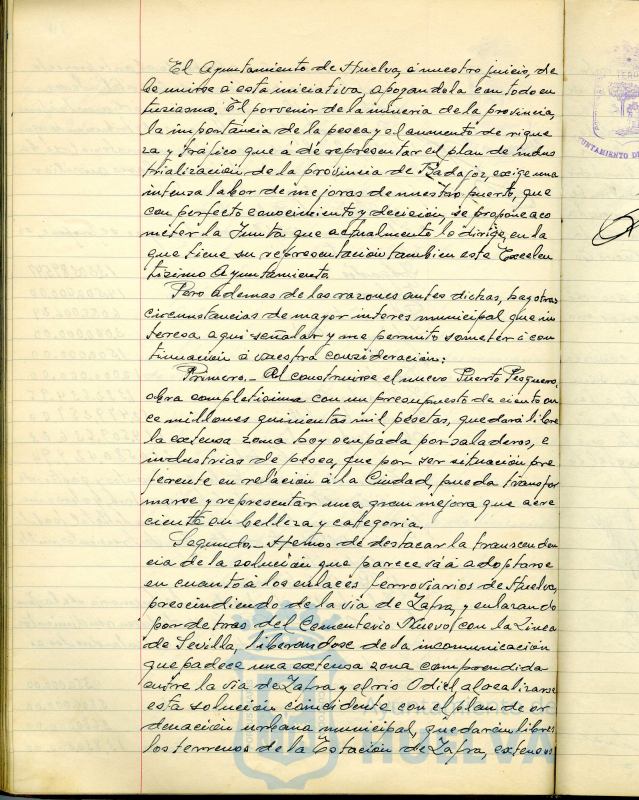 El Ayuntamiento de Huelva, á nuestro juicio, de
be unirse á esta iniciativa, apoyandola con todo en
tusiasmo. El porvenir de la mineria de la provincia,
la importancia de la pesca y el aumento de rique
za y tráfico que á de representar el plan de indus
trialización de la provincia de Badajoz, exige una
intensa labor de mejoras de nuestro puerto, que
con perfecto conocimiento y decision, se propone aco
meter la Junta que actualmente lo dirige, en la
que tiene su representación tambien este Excelen
tisimo Ayuntamiento.
Pero ademas de las razones antes dichas, hay otras
circunstancias de mayor interes municipal que in
teresa aqui señalar y me permito someter á con
tinuación á vuestra consideracion:
Primero.- Al construirse el nuevo Puerto Pesquero,
obra completisima con un presupuesto de ciento on
ce millones quinientas mil pesetas, quedará libre
la extensa zona hoy ocupada por saladeros, e
industrias de pesca, que por ser situación pre
ferente en relación á la Ciudad, pueda transfor
marse y representar una gran mejora que acre
ciente en belleza y categoria.
Segundo.- Hemos de destacar la transcenden
cia de la solución que parece vá á adoptarse
en cuanto á los enlaces ferroviarios de Huelva,
prescindiendo de la via de Zafra, y enlazando
por detras del Cementerio Nuevo con la Linea
de Sevilla, liberandose de la incomunicación
que padece una extensa zona comprendida
entre la via de Zafra y el rio Odiel, al realizarse
esta solución coincidente con el plan de or
denación urbana municipal, quedarán libres
los terrenos de la Estación de Zafra, extensos
HUELVA